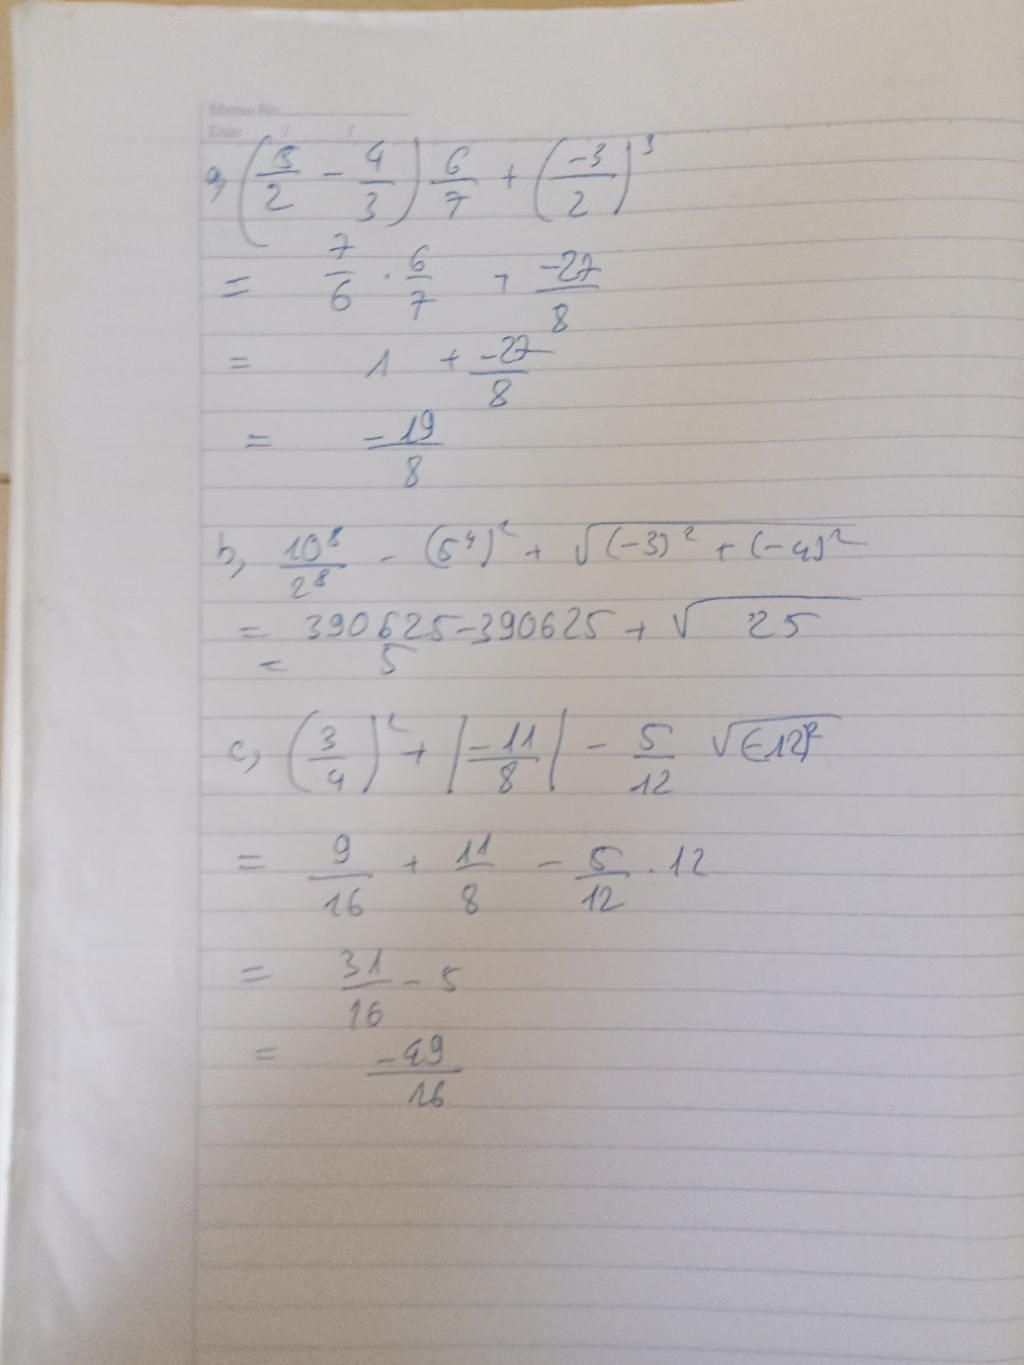 Memo No.
Date / /
a, (5/2 - 4/3) 6/7 + (-3/2)^3
= 7/6 . 6/7 + -27/8
= 1 + -27/8
= -19/8
b, 10^8/2^8 - (5^4)^2 + √((-3)^2 + (-4)^2)
= 390625 - 390625 + √25
= 5
c, (3/4)^2 + |-11/8| - 5/12 √((-12)^2)
= 9/16 + 11/8 - 5/12 . 12
= 31/16 - 5
= -49/16